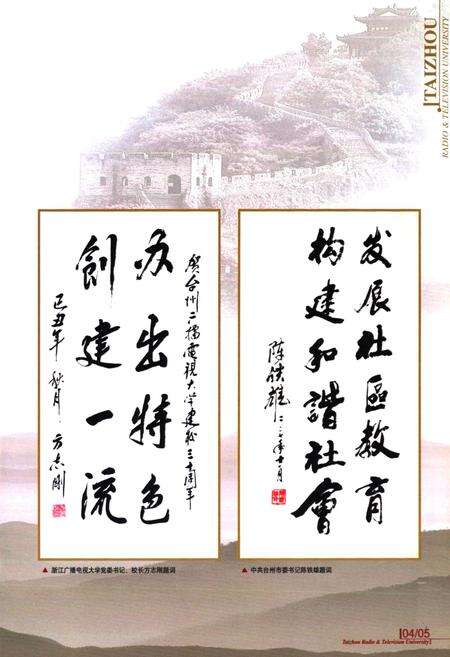 TAIZHOU
RADIO & TELEVISION UNIVERSITY
贺台州广播電視大学建校三十周年
办出特色
創建一流
己丑年秋月 方志刚
▲ 浙江广播电视大学党委书记、校长方志刚题词
发展社區教育
构建和諧社會
陈铁雄
▲ 中共台州市委书记陈铁雄题词
04/05
Taizhou Radio & Television University